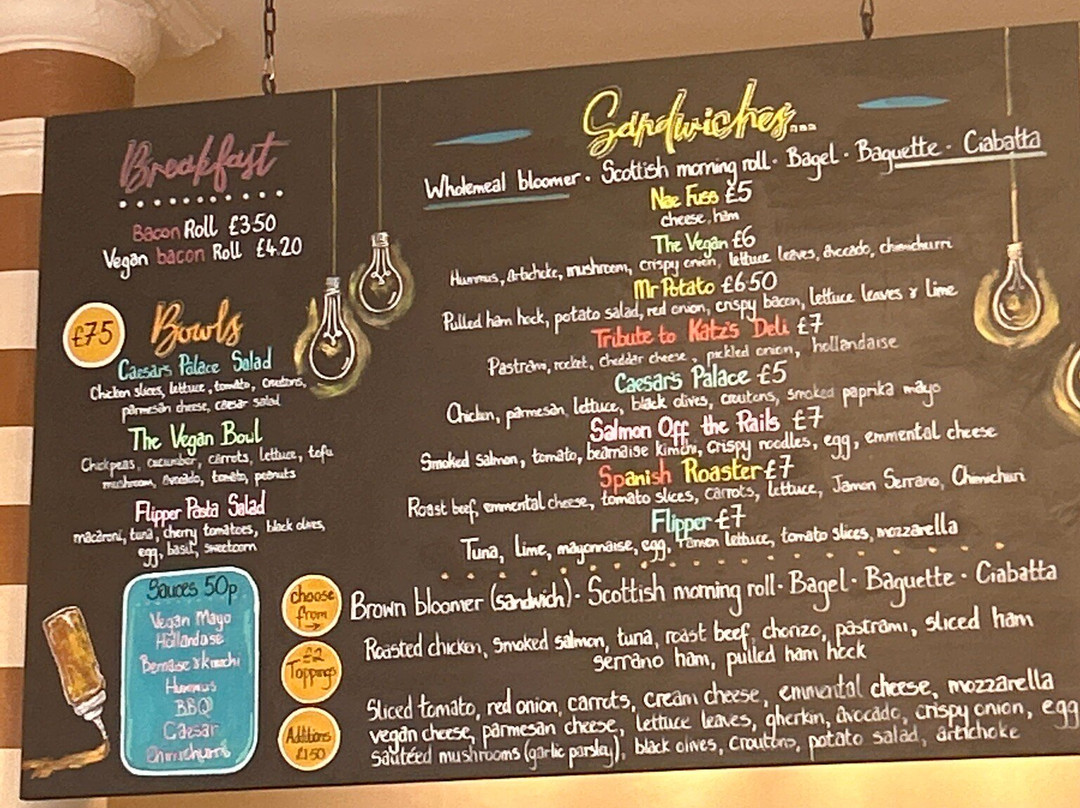 Breakfast
Bacon Roll £3.50
Vegan bacon Roll £4.20
£7.5
Bowls
Caesar's Palace Salad
Chicken slices, lettuce, tomato, croutons,
parmesan cheese, caesar salad
The Vegan Bowl
Chickpeas, cucumber, carrots, lettuce, tofu
mushroom, avocado, tomato, peanuts
Flipper Pasta Salad
macaroni, tuna, cherry tomatoes, black olives,
egg, basil, sweetcorn
Sauces 50p
Vegan Mayo
Hollandaise
Bernaise & kimchi
Hummus
BBQ
Caesar
Chimichurri
Sandwiches...
Wholemeal bloomer · Scottish morning roll · Bagel · Baguette · Ciabatta
Nae Fuss £5
cheese, ham
The Vegan £6
Hummus, artichoke, mushroom, crispy onion, lettuce leaves, avocado, chimichurri
Mr Potato £6.50
Pulled ham hock, potato salad, red onion, crispy bacon, lettuce leaves & lime
Tribute to Katz's Deli £7
Pastrami, rocket, cheddar cheese, pickled onion, hollandaise
Caesar's Palace £5
Chicken, parmesan, lettuce, black olives, croutons, smoked paprika mayo
Salmon Off the Rails £7
Smoked salmon, tomato, bearnaise kimchi, crispy noodles, egg, emmental cheese
Spanish Roaster £7
Roast beef, emmental cheese, tomato slices, carrots, lettuce, Jamon Serrano, Chimichuri
Flipper £7
Tuna, lime, mayonnaise, egg, romen lettuce, tomato slices, mozzarella
choose from →
Brown bloomer (sandwich) · Scottish morning roll · Bagel · Baguette · Ciabatta
£2 Toppings
Roasted chicken, smoked salmon, tuna, roast beef, chorizo, pastrami, sliced ham
serrano ham, pulled ham hock
Additions £1.50
Sliced tomato, red onion, carrots, cream cheese, emmental cheese, mozzarella
vegan cheese, parmesan cheese, lettuce leaves, gherkin, avocado, crispy onion, egg
sautéed mushrooms (garlic parsley), black olives, croutons, potato salad, artichoke